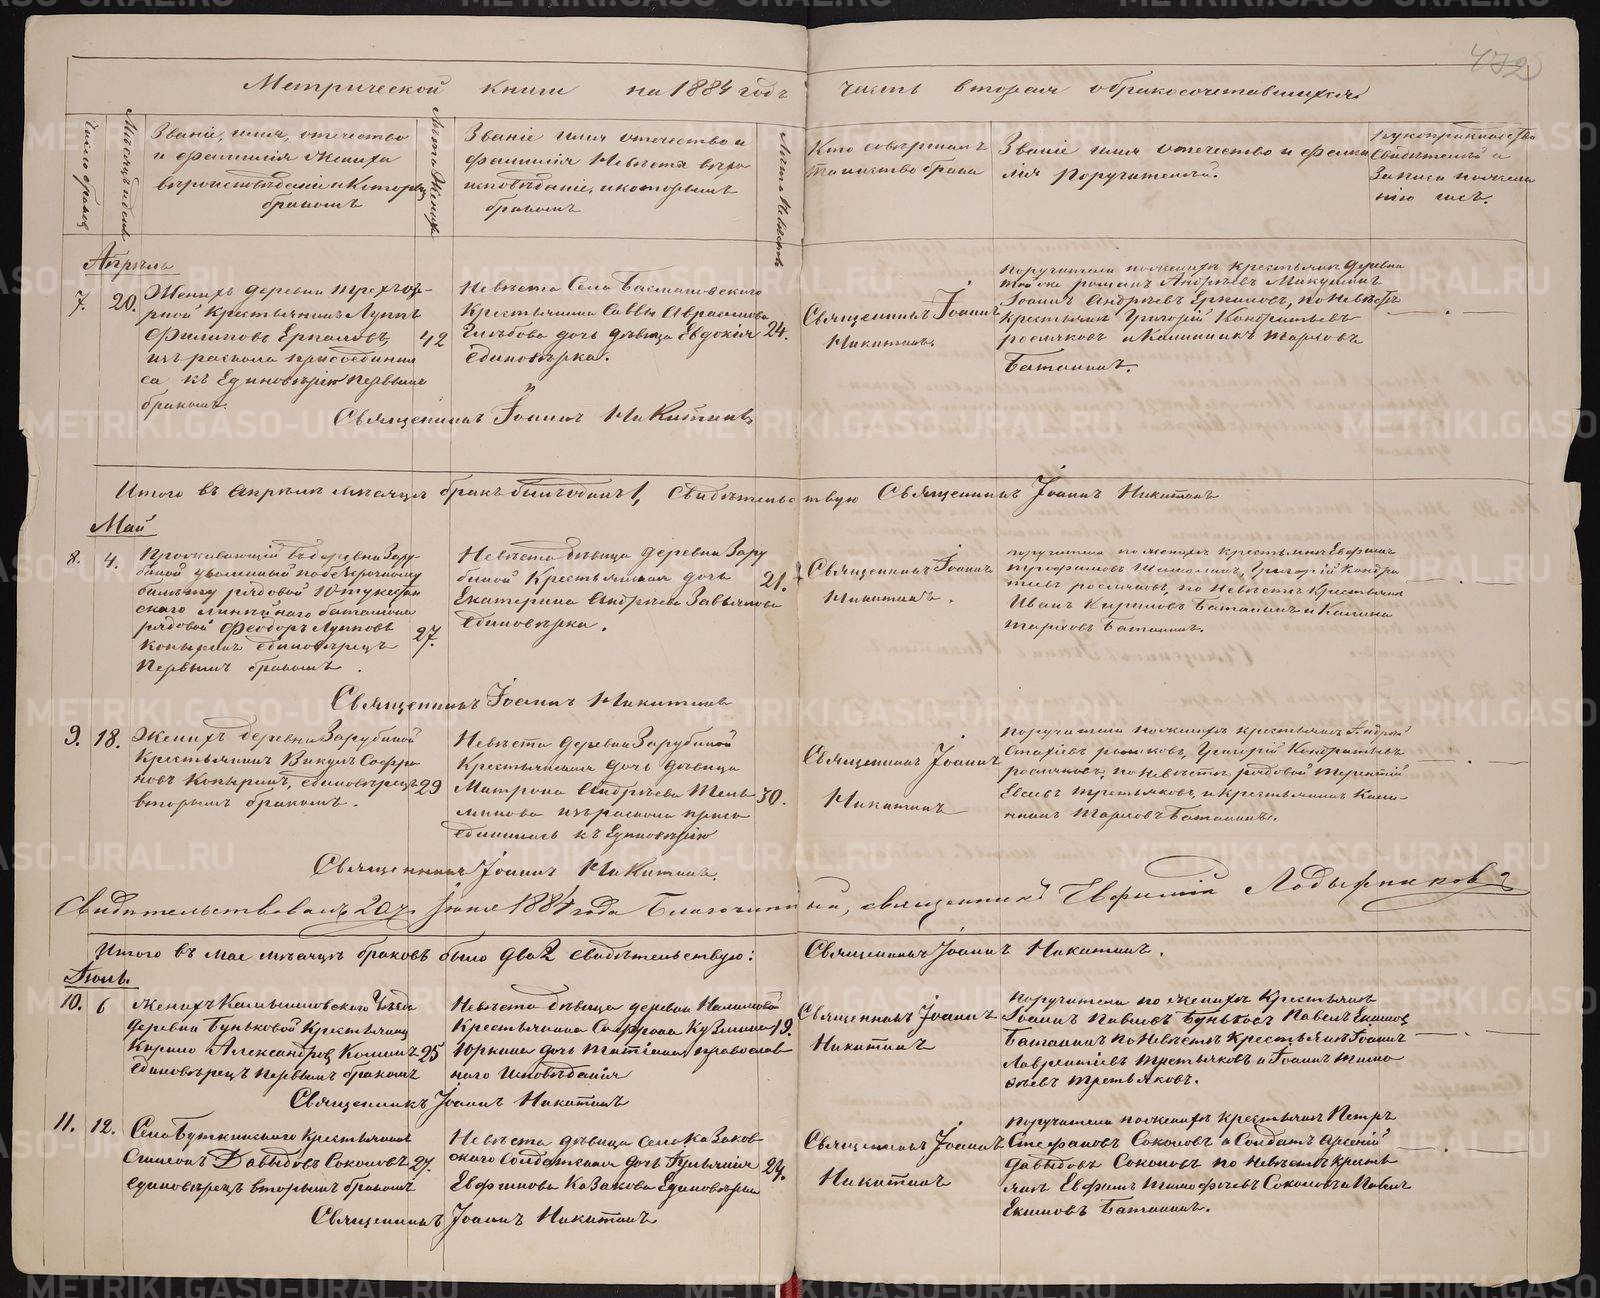 472
Метрической книги на 1884 годъ часть вторая о бракосочетавшихся
Число браковъ
Мѣсяцъ и день
Званіе, имя, отчество
и фамилія жениха
вѣроисповѣданіе и которымъ
бракомъ
Лѣта Жениха
Званіе имя отчество и
фамилія Невѣсты вѣро
исповѣданіе, и которымъ
бракомъ
Лѣта Невѣсты
Кто совершалъ
таинство брака
Званіе имя отчество и фами
лія Поручителей.
Рукоприкладство
Свидѣтелей и
Записи по жела
нію ихъ.
Апрѣль
7. 20.
Женихъ деревни
Крестьянинъ Луппъ
Филиповъ
изъ раскола присоедини
ся къ Единовѣрію первымъ
бракомъ.
42
Невѣста Села
Крестьянина Саввы Авраамова
дочь дѣвица Евдокія
Единовѣрка.
24.
Священникъ Іоаннъ
Никитинъ
Поручители по женихѣ крестьяне деревни
Андреевъ
Іоаннъ Андреевъ, по невѣстѣ
крестьяне Григорій Кондратьевъ
и Калинникъ Марковъ
Баталинъ.
Священникъ Іоаннъ Никитинъ
Итого въ Апрѣлѣ мѣсяцѣ бракъ былъ одинъ 1, Свидѣтельствую Священникъ Іоаннъ Никитинъ
Май
8. 4.
Проживающій въ деревни Зару
биной уволенный по безсрочному
билету рядовой 10 туркестан
скаго линейнаго баталіона
рядовой Феодоръ Лупповъ
Копыринъ единовѣрецъ
Первымъ бракомъ.
27.
Невѣста дѣвица деревни Зару
биной Крестьянская дочь
Екатерина Андреева Завьялова
Единовѣрка.
21.
Священникъ Іоаннъ
Никитинъ.
Поручители по женихѣ крестьяне Евфимъ
Григорій Кондра
тьевъ, по невѣстѣ Крестьяне
Иванъ Кириловъ Баталинъ и Калина
Марковъ Баталинъ.
Священникъ Іоаннъ Никитинъ
9. 18.
Женихъ деревни Зарубиной
Крестьянинъ Викулъ Софро
новъ Копыринъ, единовѣрецъ
вторымъ бракомъ.
29
Невѣста деревни Зарубиной
Крестьянская дочь дѣвица
Матрона Андреева
изъ раскола присо
единилась къ Единовѣрію
30.
Священникъ Іоаннъ
Никитинъ
Поручители по женихѣ крестьяне Андрей
Григорій Кондратьевъ
по невѣстѣ рядовой Терентій
Евсевъ Третьяковъ, и крестьянинъ Кали
нинъ Марковъ Баталинъ.
Священникъ Іоаннъ Никитинъ.
Свидетельствовалъ 20го Іюня 1884 года Благочинный, священникъ Евфимій
Итого въ Маѣ мѣсяцѣ браковъ было два 2 свидѣтельствую: Священникъ Іоаннъ Никитинъ.
Іюль.
10. 6
Женихъ Камышловскаго Уѣзда
деревни Буньковой Крестьянинъ
Кирило Александровъ
единовѣрецъ первымъ бракомъ
25
Невѣста дѣвица деревни
Крестьянина Софрона Кузмина
Юркина дочь Татіана православ
наго исповѣданія
19.
Священникъ Іоаннъ
Никитинъ
Поручители по женихѣ Крестьяне
Іоаннъ Павловъ Буньковъ Павелъ Екимовъ
Баталинъ по Невѣстѣ Крестьяне Іоаннъ
Лаврентіевъ Третьяковъ и Іоаннъ Тимо
феевъ Третьяковъ.
Священникъ Іоаннъ Никитинъ
11. 12.
Села Буткинскаго Крестьянинъ
Симеонъ Давыдовъ Соколовъ
единовѣрецъ вторымъ бракомъ
27.
Невѣста дѣвица села Казаков
скаго Солдатская дочь Гуліянія
Евфимова Казакова Единовѣрка
24.
Священникъ Іоаннъ
Никитинъ
Поручители по женихѣ крестьяне Петръ
Стефановъ Соколовъ и Солдатъ Арсеній
Давыдовъ Соколовъ по Невѣстѣ кресть
яне Евфимъ Тимофеевъ Соколовъ и Павелъ
Екимовъ Баталинъ.
Священникъ Іоаннъ Никитинъ
METRIKI.GASO-URAL.RU